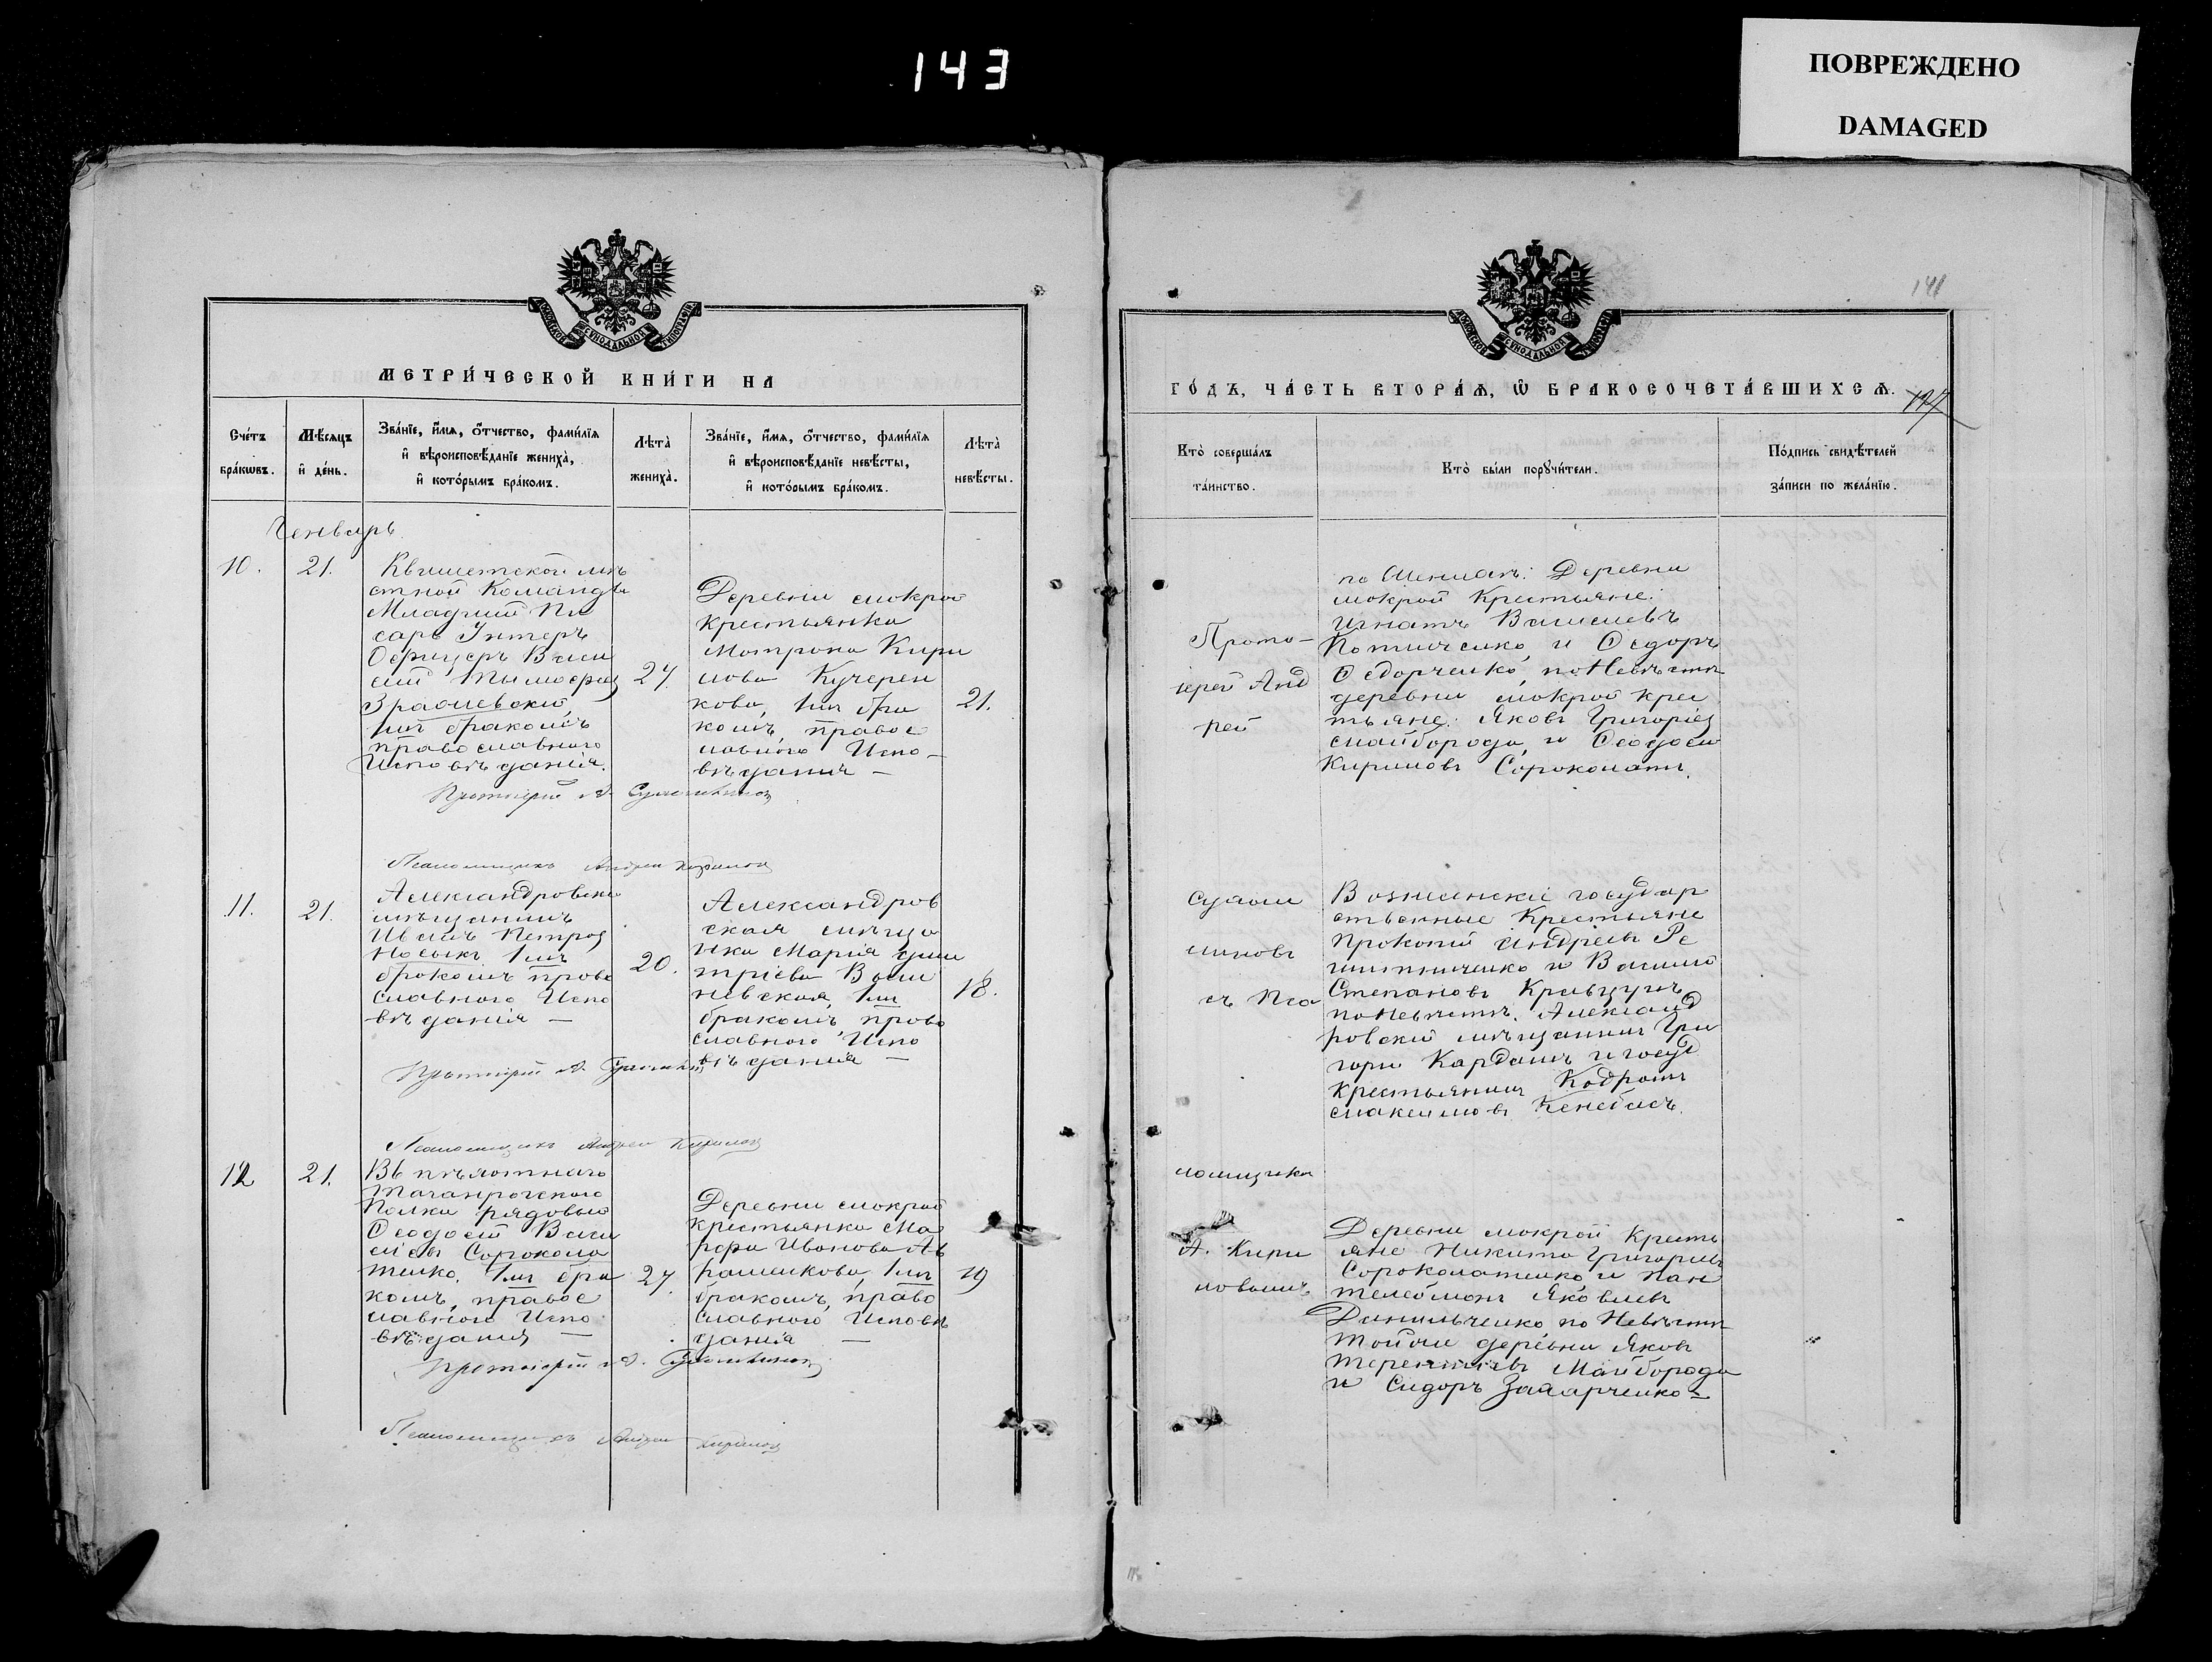 143
ПОВРЕЖДЕНО
DAMAGED
МОСКОВСКОЙ СѴНОДАЛЬНОЙ ТИПОГРАФІИ
МЕТРИ́ЧЕСКОЙ КНИ́ГИ НА
Сче́тъ бра́кѡвъ.
Мѣ́сяцъ и҆ де́нь.
Зва́нїе, и҆́мѧ, ѻ҆́тчество, фами́лїѧ
и҆ вѣроисповѣ́данїе жениха̀,
и҆ кото́рымъ бра́комъ.
Лѣта̀ жениха̀.
Зва́нїе, и҆́мѧ, ѻ҆́тчество, фами́лїѧ
и҆ вѣроисповѣ́данїе невѣ́сты,
и҆ кото́рымъ бра́комъ.
Лѣта̀ невѣ́сты.
Генварь
10.
21.
мѣ
стной Команды
Младшій Пи
сарь Унтеръ
Офицеръ Васи
лій
1мъ бракомъ
православнаго
Исповѣданія.
27.
Деревни Мокрой
крестьянка
Мотрона Кири
лова Кучерен
кова, 1мъ бра
комъ, правос
лавного Испо-
вѣданія —
21.
Протоіерей А.
Псаломщикъ Андрей Кириловъ
11.
21.
Александровскій
мѣщанинъ
Иванъ Петровъ
Носыкъ 1мъ
бракомъ право
славного Испо
вѣданія —
20.
Александров
ская мѣща
нка Марія Дми
тріева Васи
невская, 1мъ
бракомъ, право
славного Испо
вѣданія —
18.
Протоіерей А.
Псаломщикъ Андрей Кириловъ
12
21.
136 пѣхотнаго
Таганрогского
Полка рядовый
Ѳеодосій Васи
ліевъ Сорокола
тенко, 1мъ бра
комъ, правос
лавного Испо
вѣданія —
27.
Деревни Мокрой
Крестьянка Ма
рфа Иванова Ав
раменкова, 1мъ
бракомъ, право
славного Исповѣ
данія —
19
Протоіерей А.
Псаломщикъ Андрей Кириловъ
МОСКОВСКОЙ СѴНОДАЛЬНОЙ ТИПОГРАФІИ
141
ГО́ДЪ, ЧА́СТЬ ВТОРА́Ѧ, Ѡ҆ БРАКОСОЧЕТА́ВШИХСѦ.
127
Кто̀ соверша́лъ
та́инство.
Кто̀ бы́ли порꙋчи́тели.
По́дпись свидѣ́телей
за́писи по жела́нїю.
Прото-
іерей Анд
рей
съ Пса
ломщико
А. Кири
ловымъ
по Женихѣ: Деревни
Мокрой Крестьяне:
Игнатъ Васильевъ
и Ѳедоръ
Ѳедорченко, по Невѣстѣ
деревни Мокрой крес
тьяне: Яковъ Григоріевъ
Майборода, и Ѳеодосій
Кириловъ Сороколатъ.
Вознесенскіе государ
ственные Крестьяне
Прокопій Андреевъ Ре
и Василій
Степановъ Кравцунъ
по Невѣстѣ. Александ
ровскій мѣщанинъ Гри
горій Кардашъ и госуд
крестьянинъ Кодратъ
Максимовъ
Деревни Мокрой Кресть
яне Никита Григорьевъ
Сороколатенко и Пан
телеймонъ Яковлевъ
Данильченко по Невѣстѣ
тойже деревни Яковъ
Терентіевъ Майборода
и Сидоръ Захарченко —